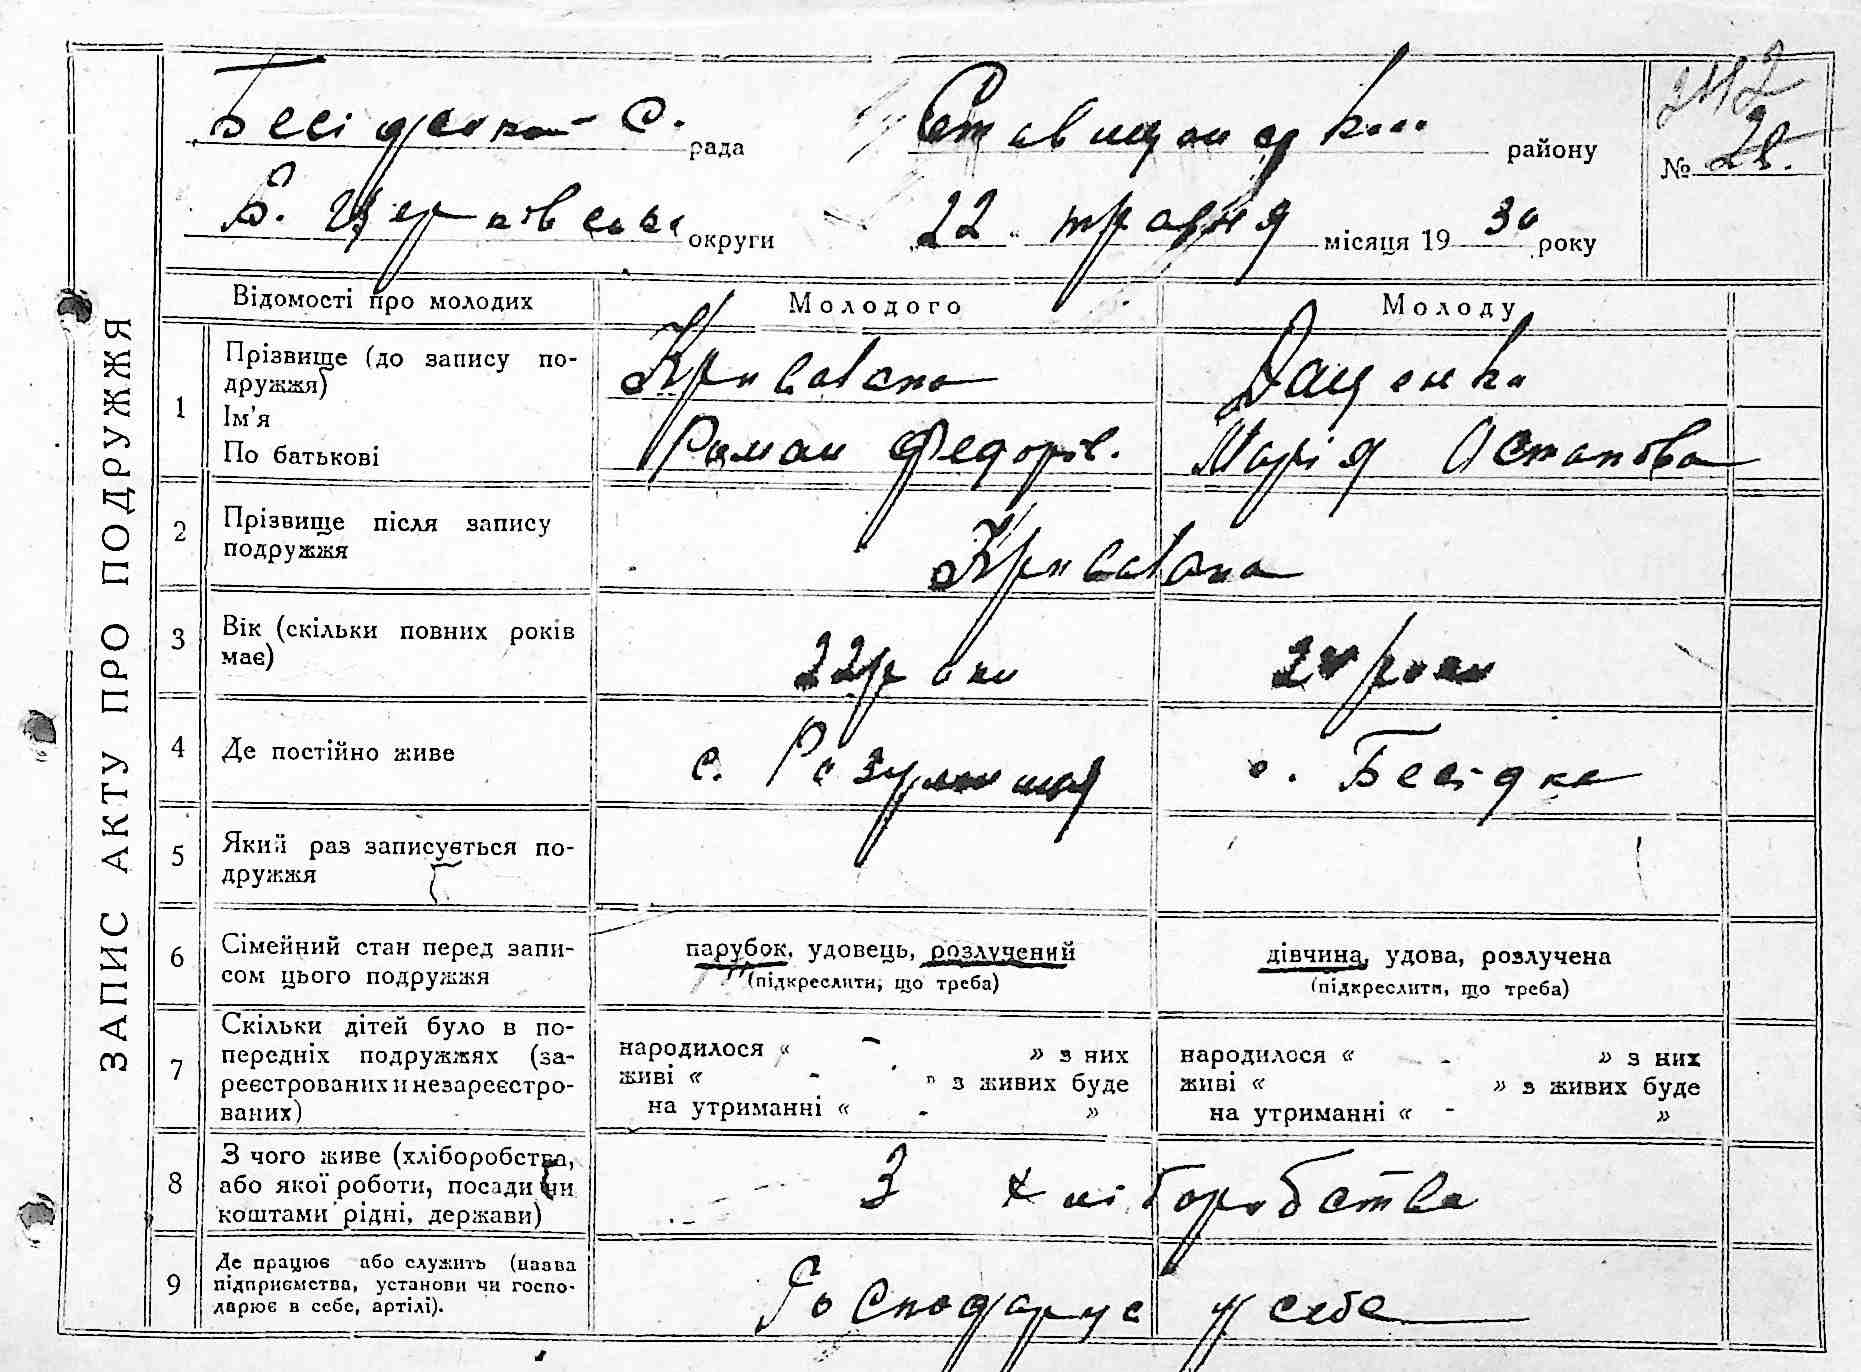 ЗАПИС АКТУ ПРО ПОДРУЖЖЯ
Бесідської с. рада
Б. Церківської округи
району
22 травня місяця 1930 року
№ 28.
Відомості про молодих Молодого Молоду
1 Прізвище (до запису подружжя)
Ім'я
По батькові
Даценко
Роман Федорів. Марія Остапова
2 Прізвище після запису
подружжя
3 Вік (скільки повних років
має)
22 роки роки
4 Де постійно живе
с. с. Бесідка
5 Який раз записується по-
дружжя
6 Сімейний стан перед запи-
сом цього подружжя
парубок, удовець, розлучений
(підкреслити, що треба)
дівчина, удова, розлучена
(підкреслити, що треба)
7 Скільки дітей було в по-
передніх подружжях (за-
реєстрованих и незареєстро-
ваних)
народилося « - » з них
живі « - » з живих буде
на утриманні « - »
народилося « - » з них
живі « » з живих буде
на утриманні « - »
8 З чого живе (хліборобства,
або якої роботи, посади чи
коштами рідні, держави)
З хліборобства
9 Де працює або служить (назва
підприємства, установи чи госпо-
дарює в себе, артілі).
Господарує у себе